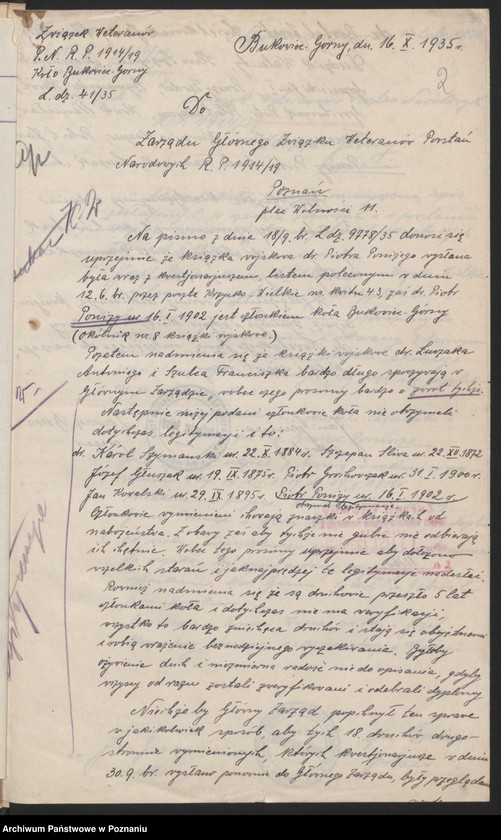 Związek Weteranów
P. N. R. P. 1914/19
Koło Bukowiec-Górny
L. dz. 41/35
Bukowiec-Górny, dn. 16. X. 1935 r.
2
Do
Zarządu Głównego Związku Weteranów Powstań
Narodowych R. P. 1914/19
Poznań
plac Wolności 11.
Na pismo z dnia 18/9. br. L. dz. 9778/35 donosi się
uprzejmie że książka wojskowa dr. Piotra Poniżego wysłana
była wraz z kwestjonarjuszem, listem poleconym w dniu
12.6. br. przez pocztę Wielkie nr. kwitu 43, zaś dr. Piotr
Poniży ur. 16. I. 1902 jest członkiem koła Bukowiec-Górny
(okólnik nr. 8 książki wojskowe.)
Pozatem nadmienia się że książki wojskowe dr.
Antoniego i Szulca Franciszka bardzo długo spoczywają w
Głównym Zarządzie, wobec czego prosimy bardzo o zwrot tychże.
Następnie niżej podani członkowie koła nie otrzymali
dotychczas legitymacji i to:
dr. Karol Szymański ur. 22. X. 1884 r. Szczepan Śliwa ur. 22. XII. 1872
Józef ur. 19. IX. 1875 r. Piotr ur. 31. I. 1900 r.
Jan Kowalski ur. 29. IX. 1895 r. Piotr Poniży ur. 16. I. 1902 r.
Członkowie wymienieni chowają znaczki w książkach od
nabożeństwa. Z obawy zaś aby tychże nie gubić nie odbierają
ich chętnie. Wobec tego prosimy uprzejmie aby dołożono
wszelkich starań i jaknajprędzej te legitymacje nadesłać.
Również nadmienia się że są druhowie przeszło 5 lat
członkami koła i dotychczas nie ma weryfikacji,
wszystko to bardzo zniechęca druhów i stają się obojętnemi
i robią wrażenie beznadziejnego wyczekiwania. Byłoby
ożywienie duch i niezmierna radość nie do opisania, gdyby
wszyscy od razu zostali zweryfikowani i odebrali dyplomy
Niechże by Główny Zarząd popchnął tę sprawę
w jakikolwiek sposób, aby tych 18. druhów drugo-
stronnie wymienionych, których kwestjonarjusze w dniu
30.9. br. wysłano ponownie do Głównego Zarządu, były przeglądan
Archiwum Państwowe w Poznaniu